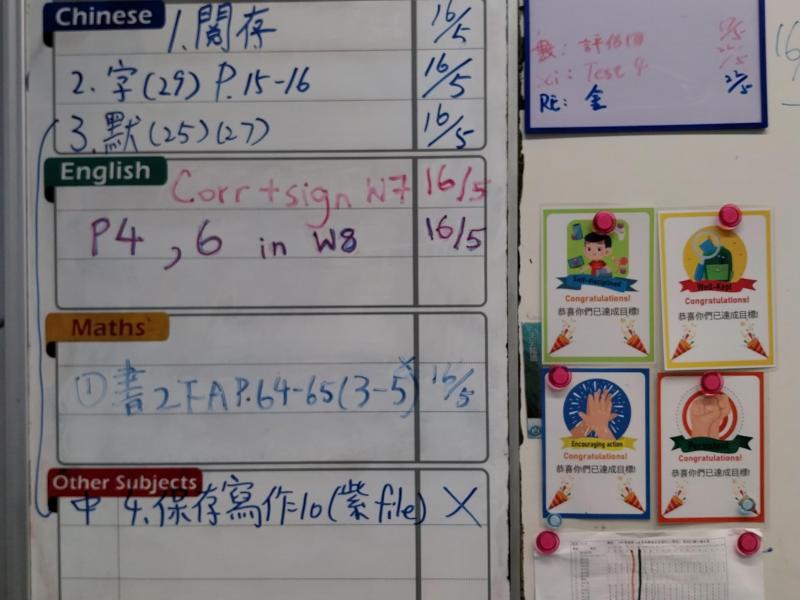 Chinese
1. 閱存 16/5
2. 字(29) P.15-16 16/5
3. 默(25)(27) 16/5
English
Corr + sign W7 16/5
P4, 6 in W8 16/5
Maths
① 書2下A P.64-65(3-5) 16/5
Other Subjects
中 4. 保存寫作10(紫file) X
數: 評估
Test 4
RE: 金
Self-disciplined
Congratulations!
恭喜你們已達成目標!
Well-Kept
Congratulations!
恭喜你們已達成目標!
Encouraging action
Congratulations!
恭喜你們已達成目標!
Congratulations!
恭喜你們已達成目標!